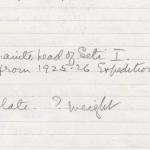 head of Seti I.
from 1925-26 Expedition
late. ? weight